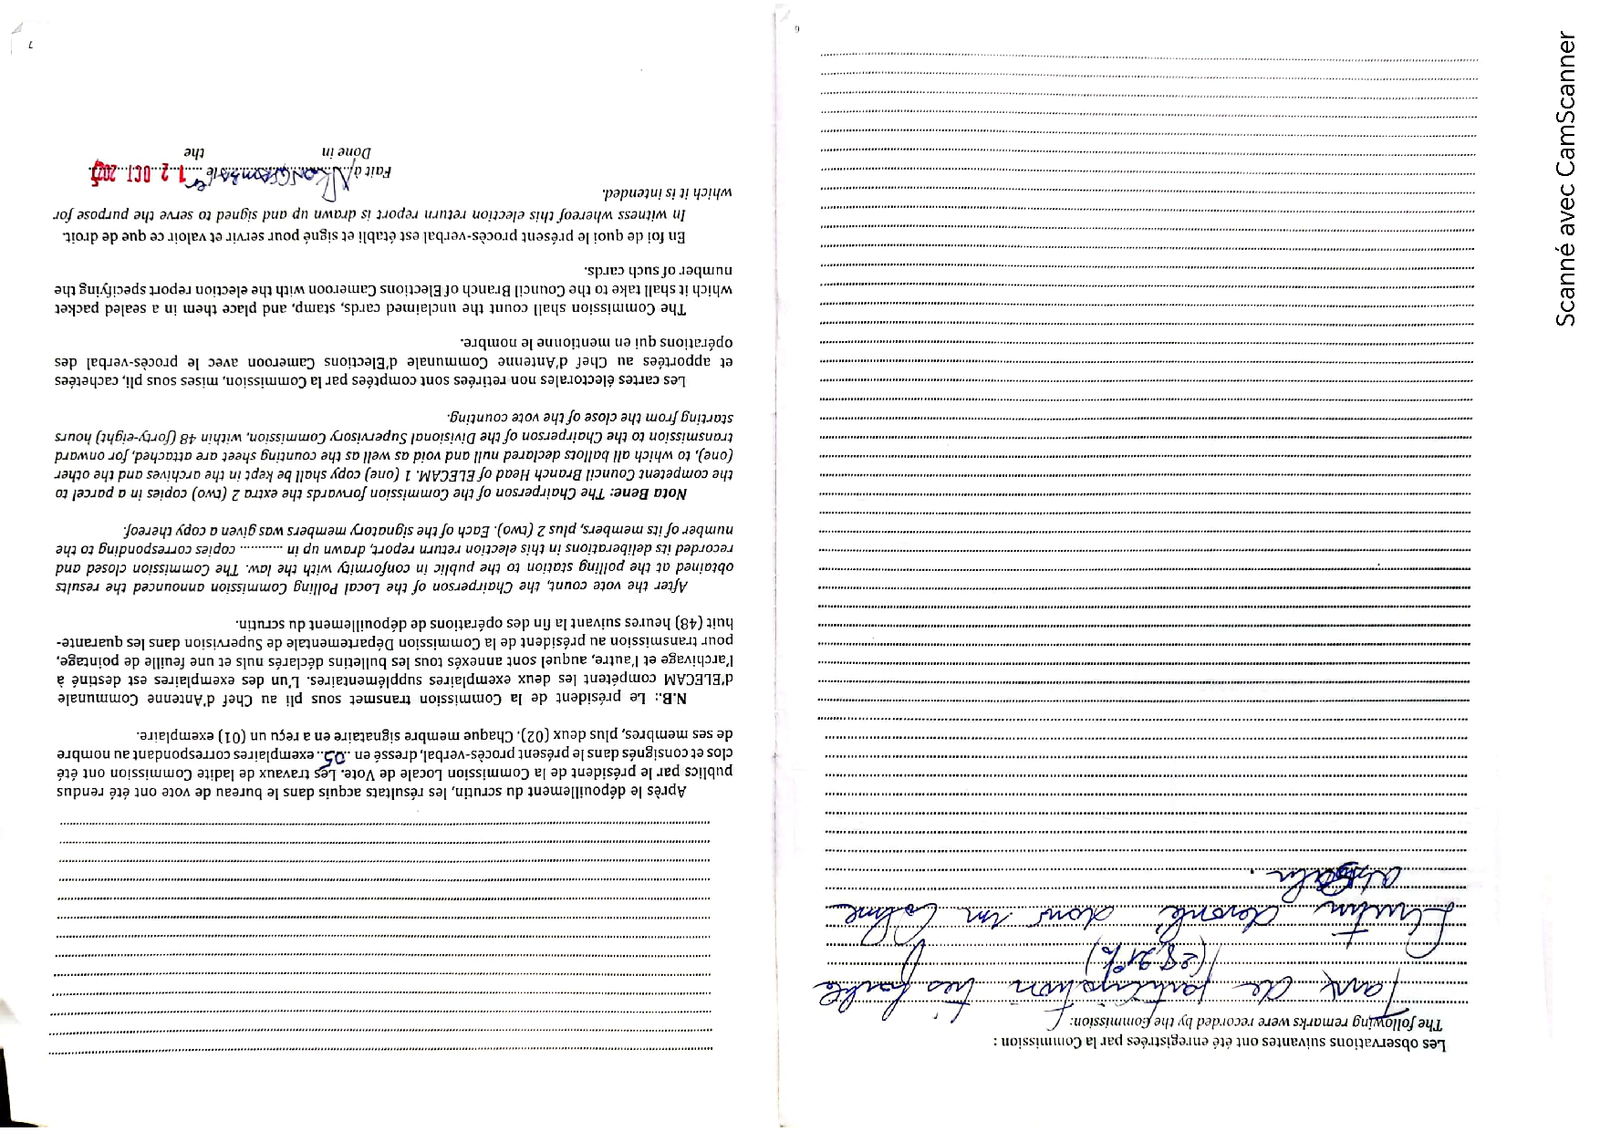 Les observations suivantes ont été enregistrées par la Commission :
The following remarks were recorded by the Commission:
Taux de participation très faible
(28,21%)
Scrutin déroulé dans un calme
absolu.
6
Après le dépouillement du scrutin, les résultats acquis dans le bureau de vote ont été rendus
publics par le président de la Commission Locale de Vote. Les travaux de ladite Commission ont été
clos et consignés dans le présent procès-verbal, dressé en ..05.. exemplaires correspondant au nombre
de ses membres, plus deux (02). Chaque membre signataire en a reçu un (01) exemplaire.
N.B.: Le président de la Commission transmet sous pli au Chef d'Antenne Communale
d'ELECAM compétent les deux exemplaires supplémentaires. L'un des exemplaires est destiné à
l'archivage et l'autre, auquel sont annexés tous les bulletins déclarés nuls et une feuille de pointage,
pour transmission au président de la Commission Départementale de Supervision dans les quarante-
huit (48) heures suivant la fin des opérations de dépouillement du scrutin.
After the vote count, the Chairperson of the Local Polling Commission announced the results
obtained at the polling station to the public in conformity with the law. The Commission closed and
recorded its deliberations in this election return report, drawn up in ........... copies corresponding to the
number of its members, plus 2 (two). Each of the signatory members was given a copy thereof.
Nota Bene: The Chairperson of the Commission forwards the extra 2 (two) copies in a parcel to
the competent Council Branch Head of ELECAM. 1 (one) copy shall be kept in the archives and the other
(one), to which all ballots declared null and void as well as the counting sheet are attached, for onward
transmission to the Chairperson of the Divisional Supervisory Commission, within 48 (forty-eight) hours
starting from the close of the vote counting.
Les cartes électorales non retirées sont comptées par la Commission, mises sous pli, cachetées
et apportées au Chef d'Antenne Communale d'Elections Cameroon avec le procès-verbal des
opérations qui en mentionne le nombre.
The Commission shall count the unclaimed cards, stamp, and place them in a sealed packet
which it shall take to the Council Branch of Elections Cameroon with the election report specifying the
number of such cards.
En foi de quoi le présent procès-verbal est établi et signé pour servir et valoir ce que de droit.
In witness whereof this election return report is drawn up and signed to serve the purpose for
which it is intended.
Fait à le 12 OCT 2025
Done in the
7
Scanné avec CamScanner